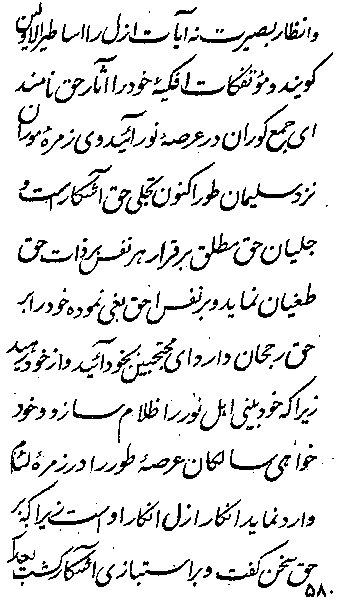 و انظار بصیرت نه آیات ازل را اساطیر الاولین
کویند و مؤتفکات افکیهٔ خود را آثار حق نامند
ای جمع کوران در عرصهٔ نور آئید وی زمرهٔ موران
نزد سلیمان طور اکنون تجلی حق آشکار است و
جلیان حق مطلق برقرار هر نفس بر ذات حق
طغیان نماید و بر نفس احق بغی نموده خود را بر
حق رجحان دارد ای محتجبین بخود آئید و از خود رهید
زیرا که خود بینی اهل نور را ظلام سازد و خود
خواهی سالکان عرصهٔ طور را در زمرهٔ لئام
وارد نماید انکار ازل انکار اوست زیرا که بر
حق سخن گفت و براستبازی آشکار گشت
۵۸۰